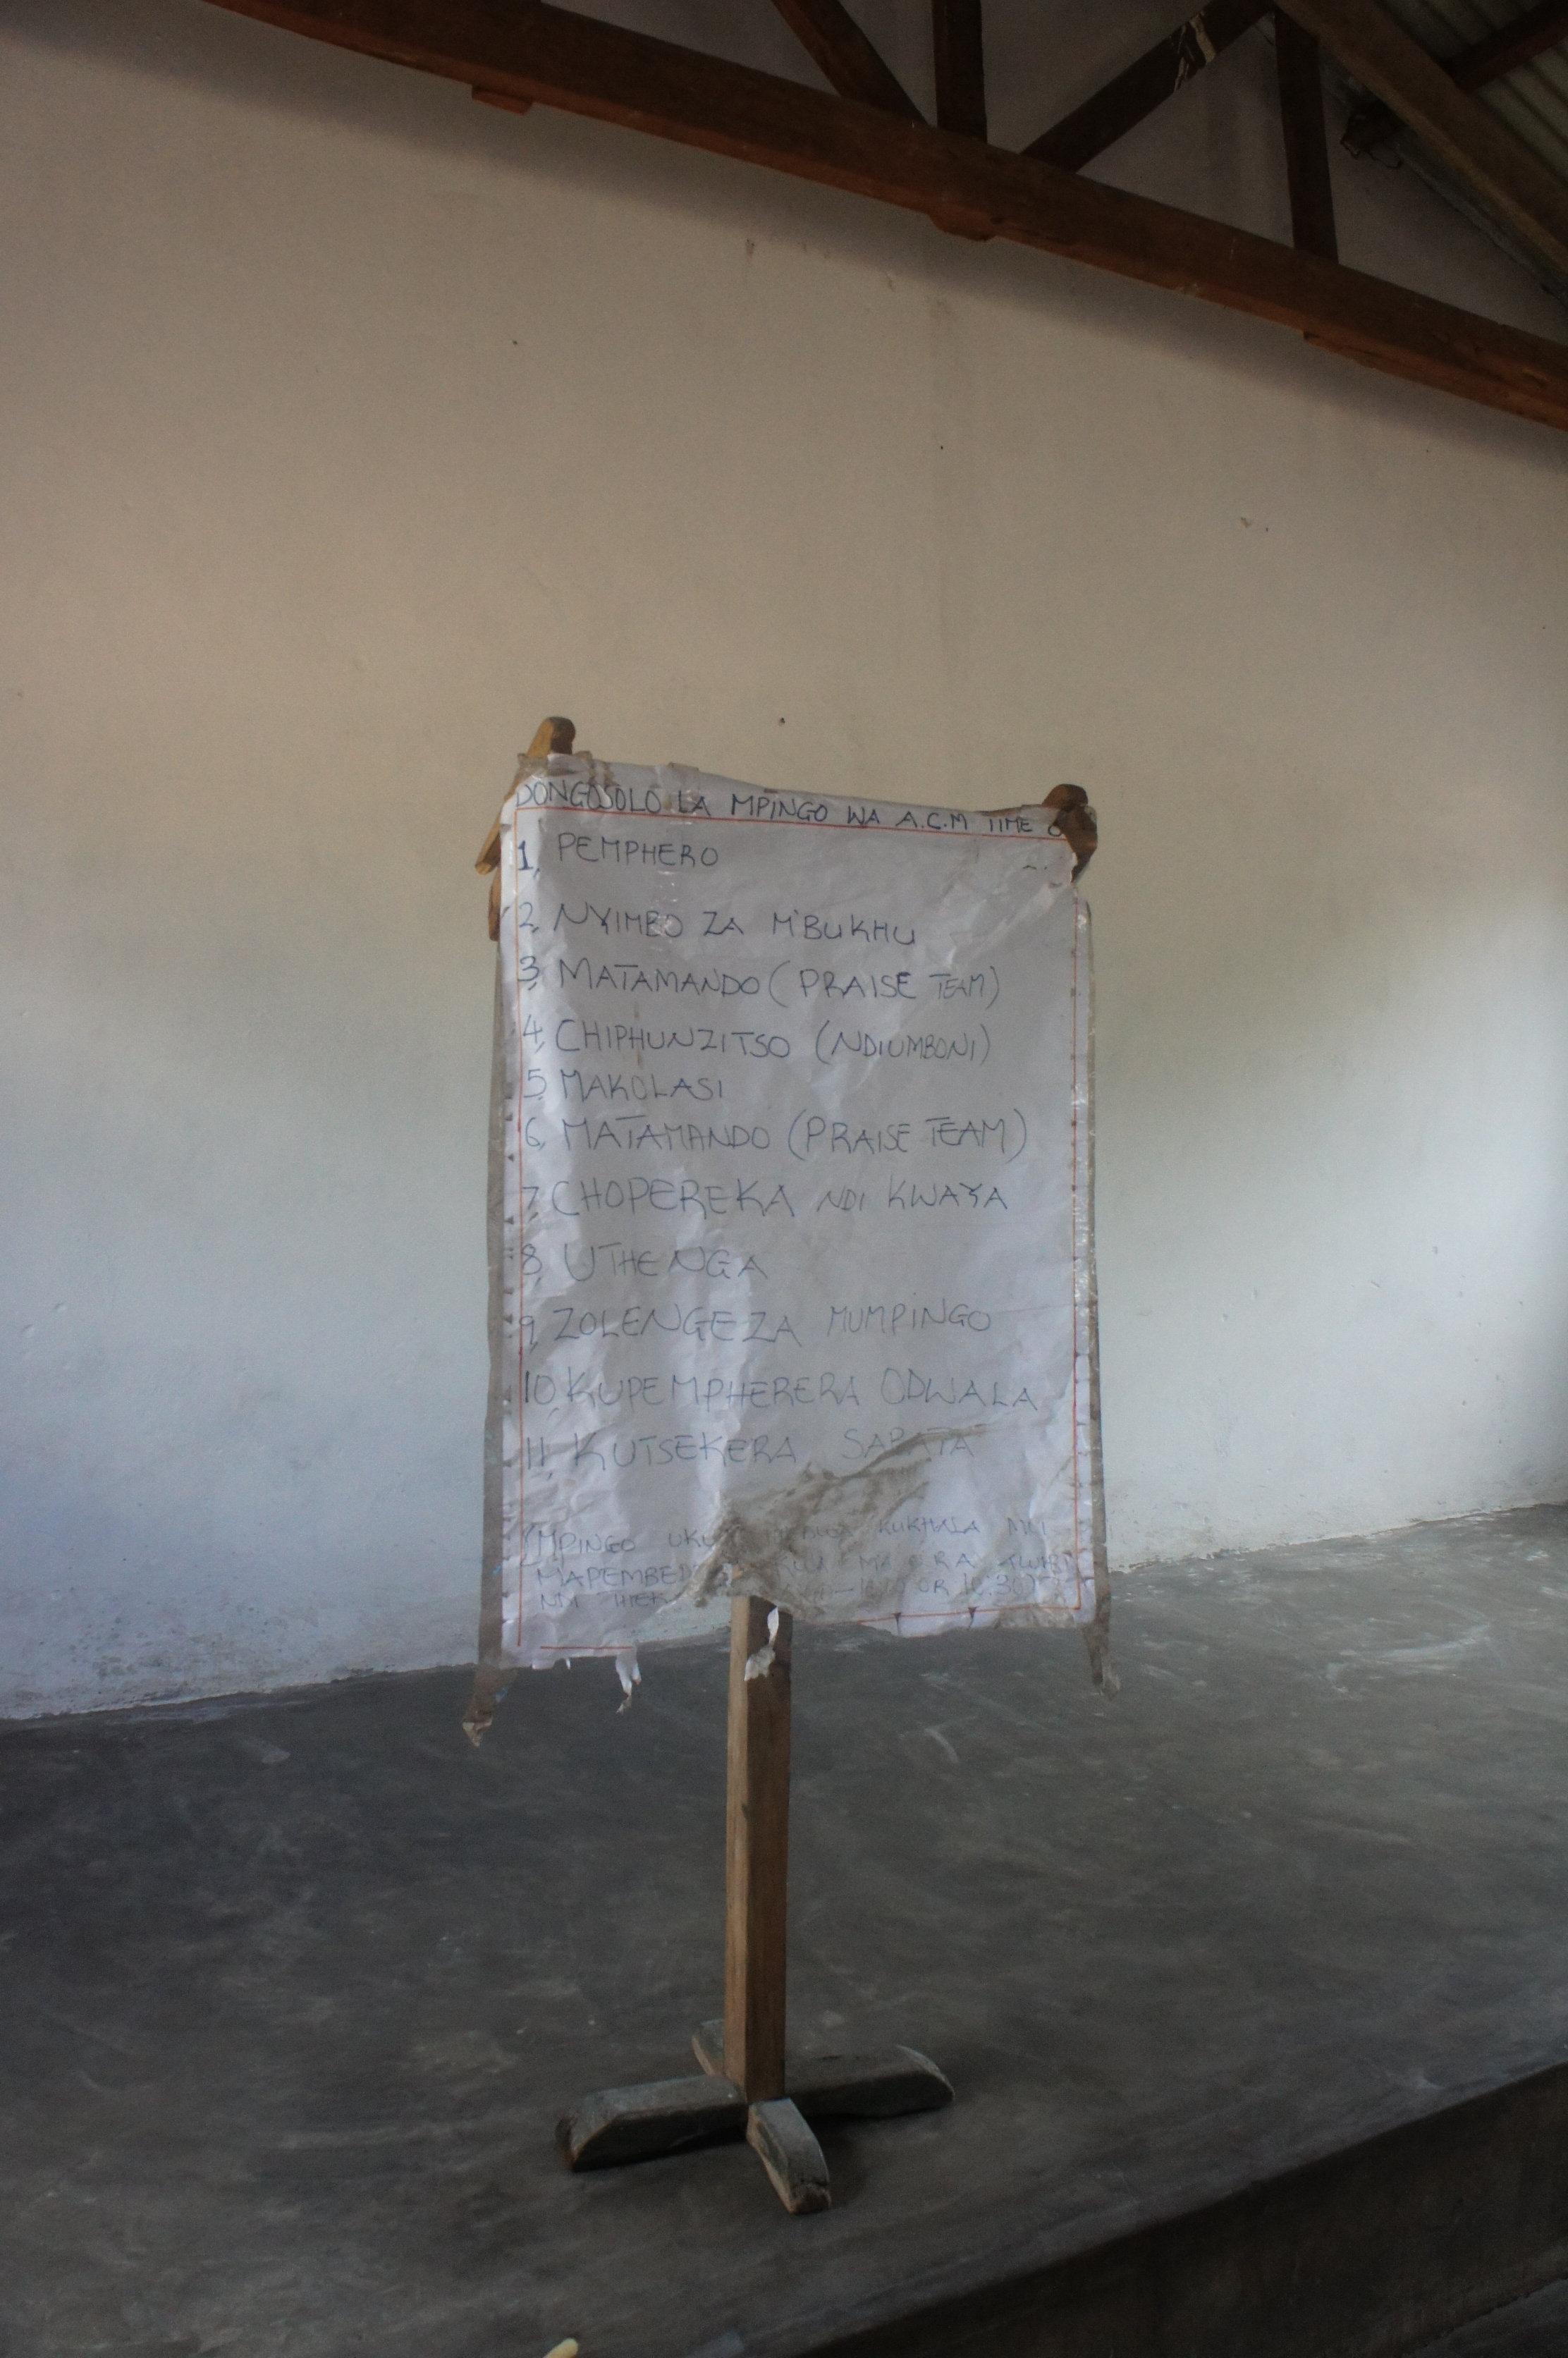 DONGOSOLO LA MPINGO WA A.C.M TIME
1, PEMPHERO
2, NYIMBO ZA M'BUKHU
3, MATAMANDO (PRAISE TEAM)
4, CHIPHUNZITSO (NDIUMBONI)
5, MAKOLASI
6, MATAMANDO (PRAISE TEAM)
7, CHOPEREKA NDI KWAYA
8, UTHENGA
9, ZOLENGEZA MUMPINGO
10, KUPEMPHERERA ODWALA
11, KUTSEKERA SABATA
(MPINGO KUKHALA MU
MAPEMBED AWIRI
NDI OR 10:30)